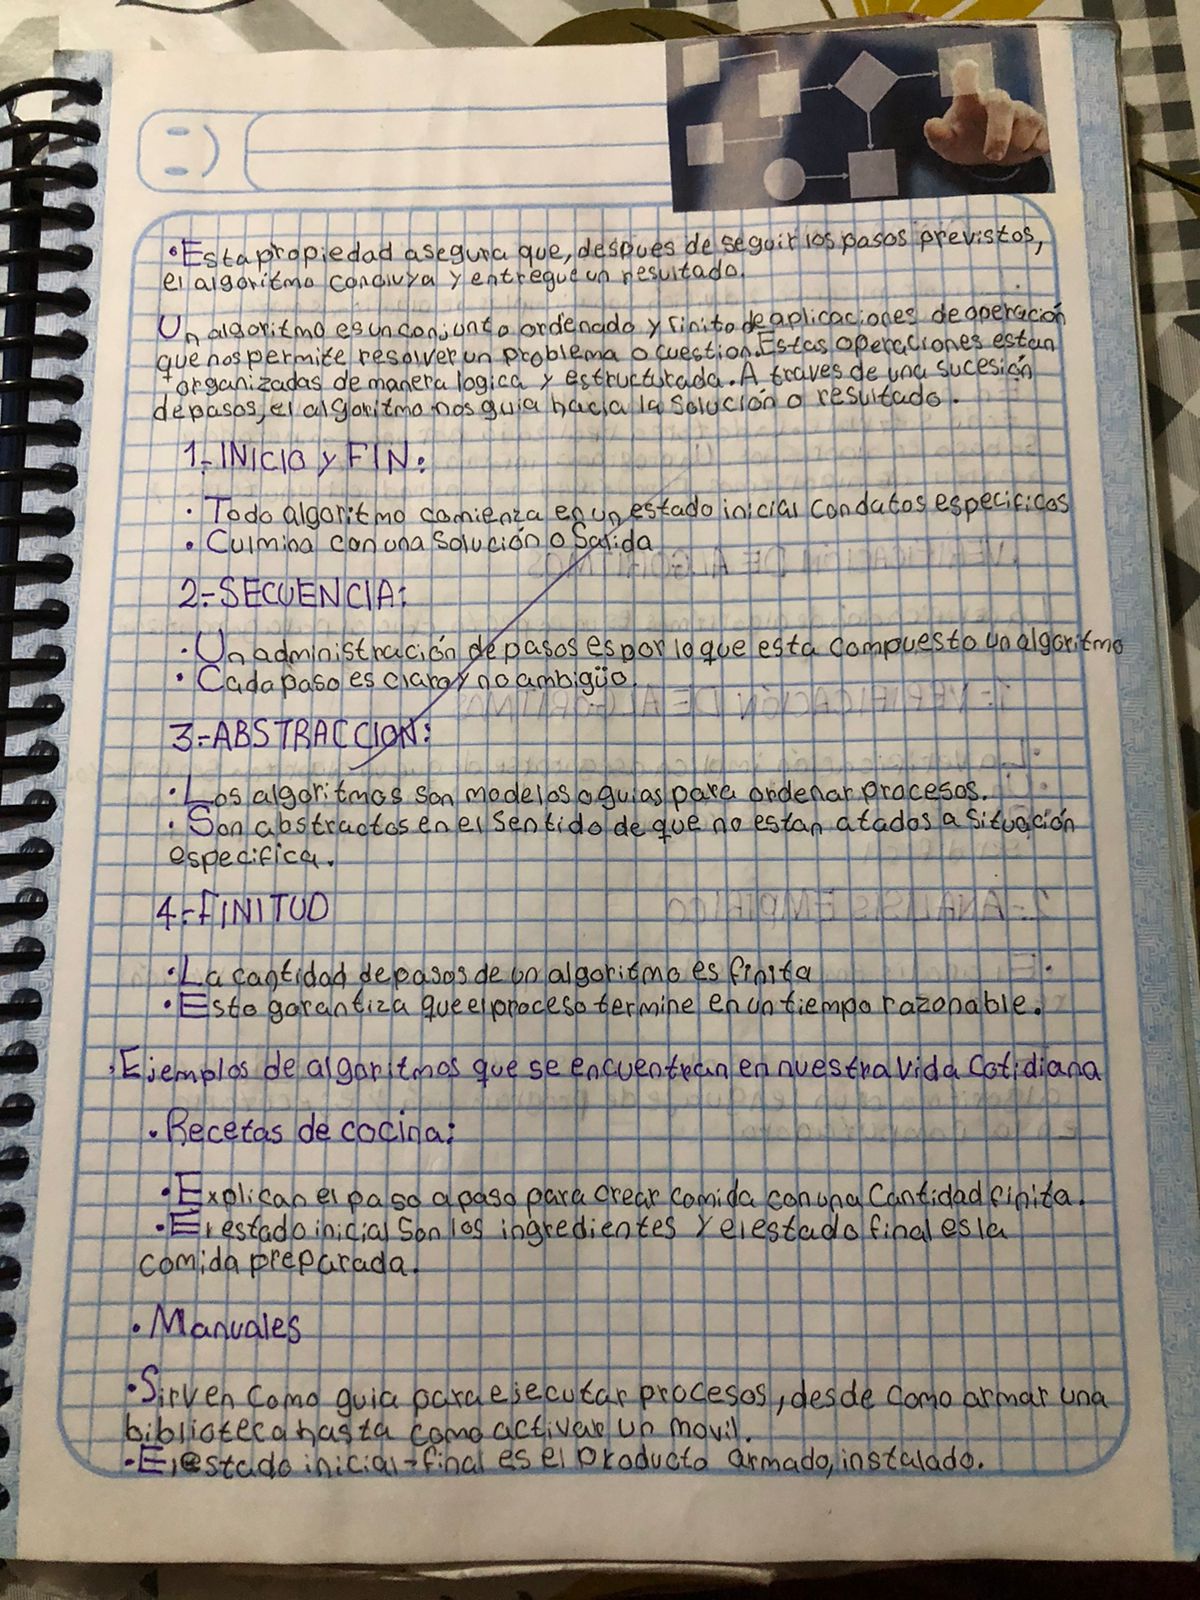 •Esta propiedad asegura que, despues de seguir los pasos previstos,
el algoritmo concluya y entregue un resultado.
Un algoritmo es un conjunto ordenado y finito de aplicaciones de operación
que nos permite resolver un problema o cuestion. Estas operaciones estan
organizadas de manera logica y estructurada. A traves de una sucesión
de pasos, el algoritmo nos guia hacia la solución o resultado.
1-INICIO y FIN:
• Todo algoritmo comienza en un estado inicial con datos especificos
• Culmina con una solución o Salida
2-SECUENCIA:
• Un administración de pasos es por lo que esta compuesto un algoritmo
• Cada paso es claro y no ambigüo.
3-ABSTRACCION:
• Los algoritmos son modelos o guias para ordenar procesos.
• Son abstractos en el sentido de que no estan atados a situación
especifica.
4-FINITUD
•La cantidad de pasos de un algoritmo es finita
•Esto garantiza que el proceso termine en un tiempo razonable.
Ejemplos de algoritmos que se encuentran en nuestra vida cotidiana
• Recetas de cocina:
•Explican el paso a paso para crear comida con una cantidad finita.
•El estado inicial son los ingredientes y el estado final es la
comida preparada.
• Manuales
•Sirven como guia para ejecutar procesos, desde como armar una
biblioteca hasta como activar un movil.
•El estado inicial-final es el producto armado, instalado.